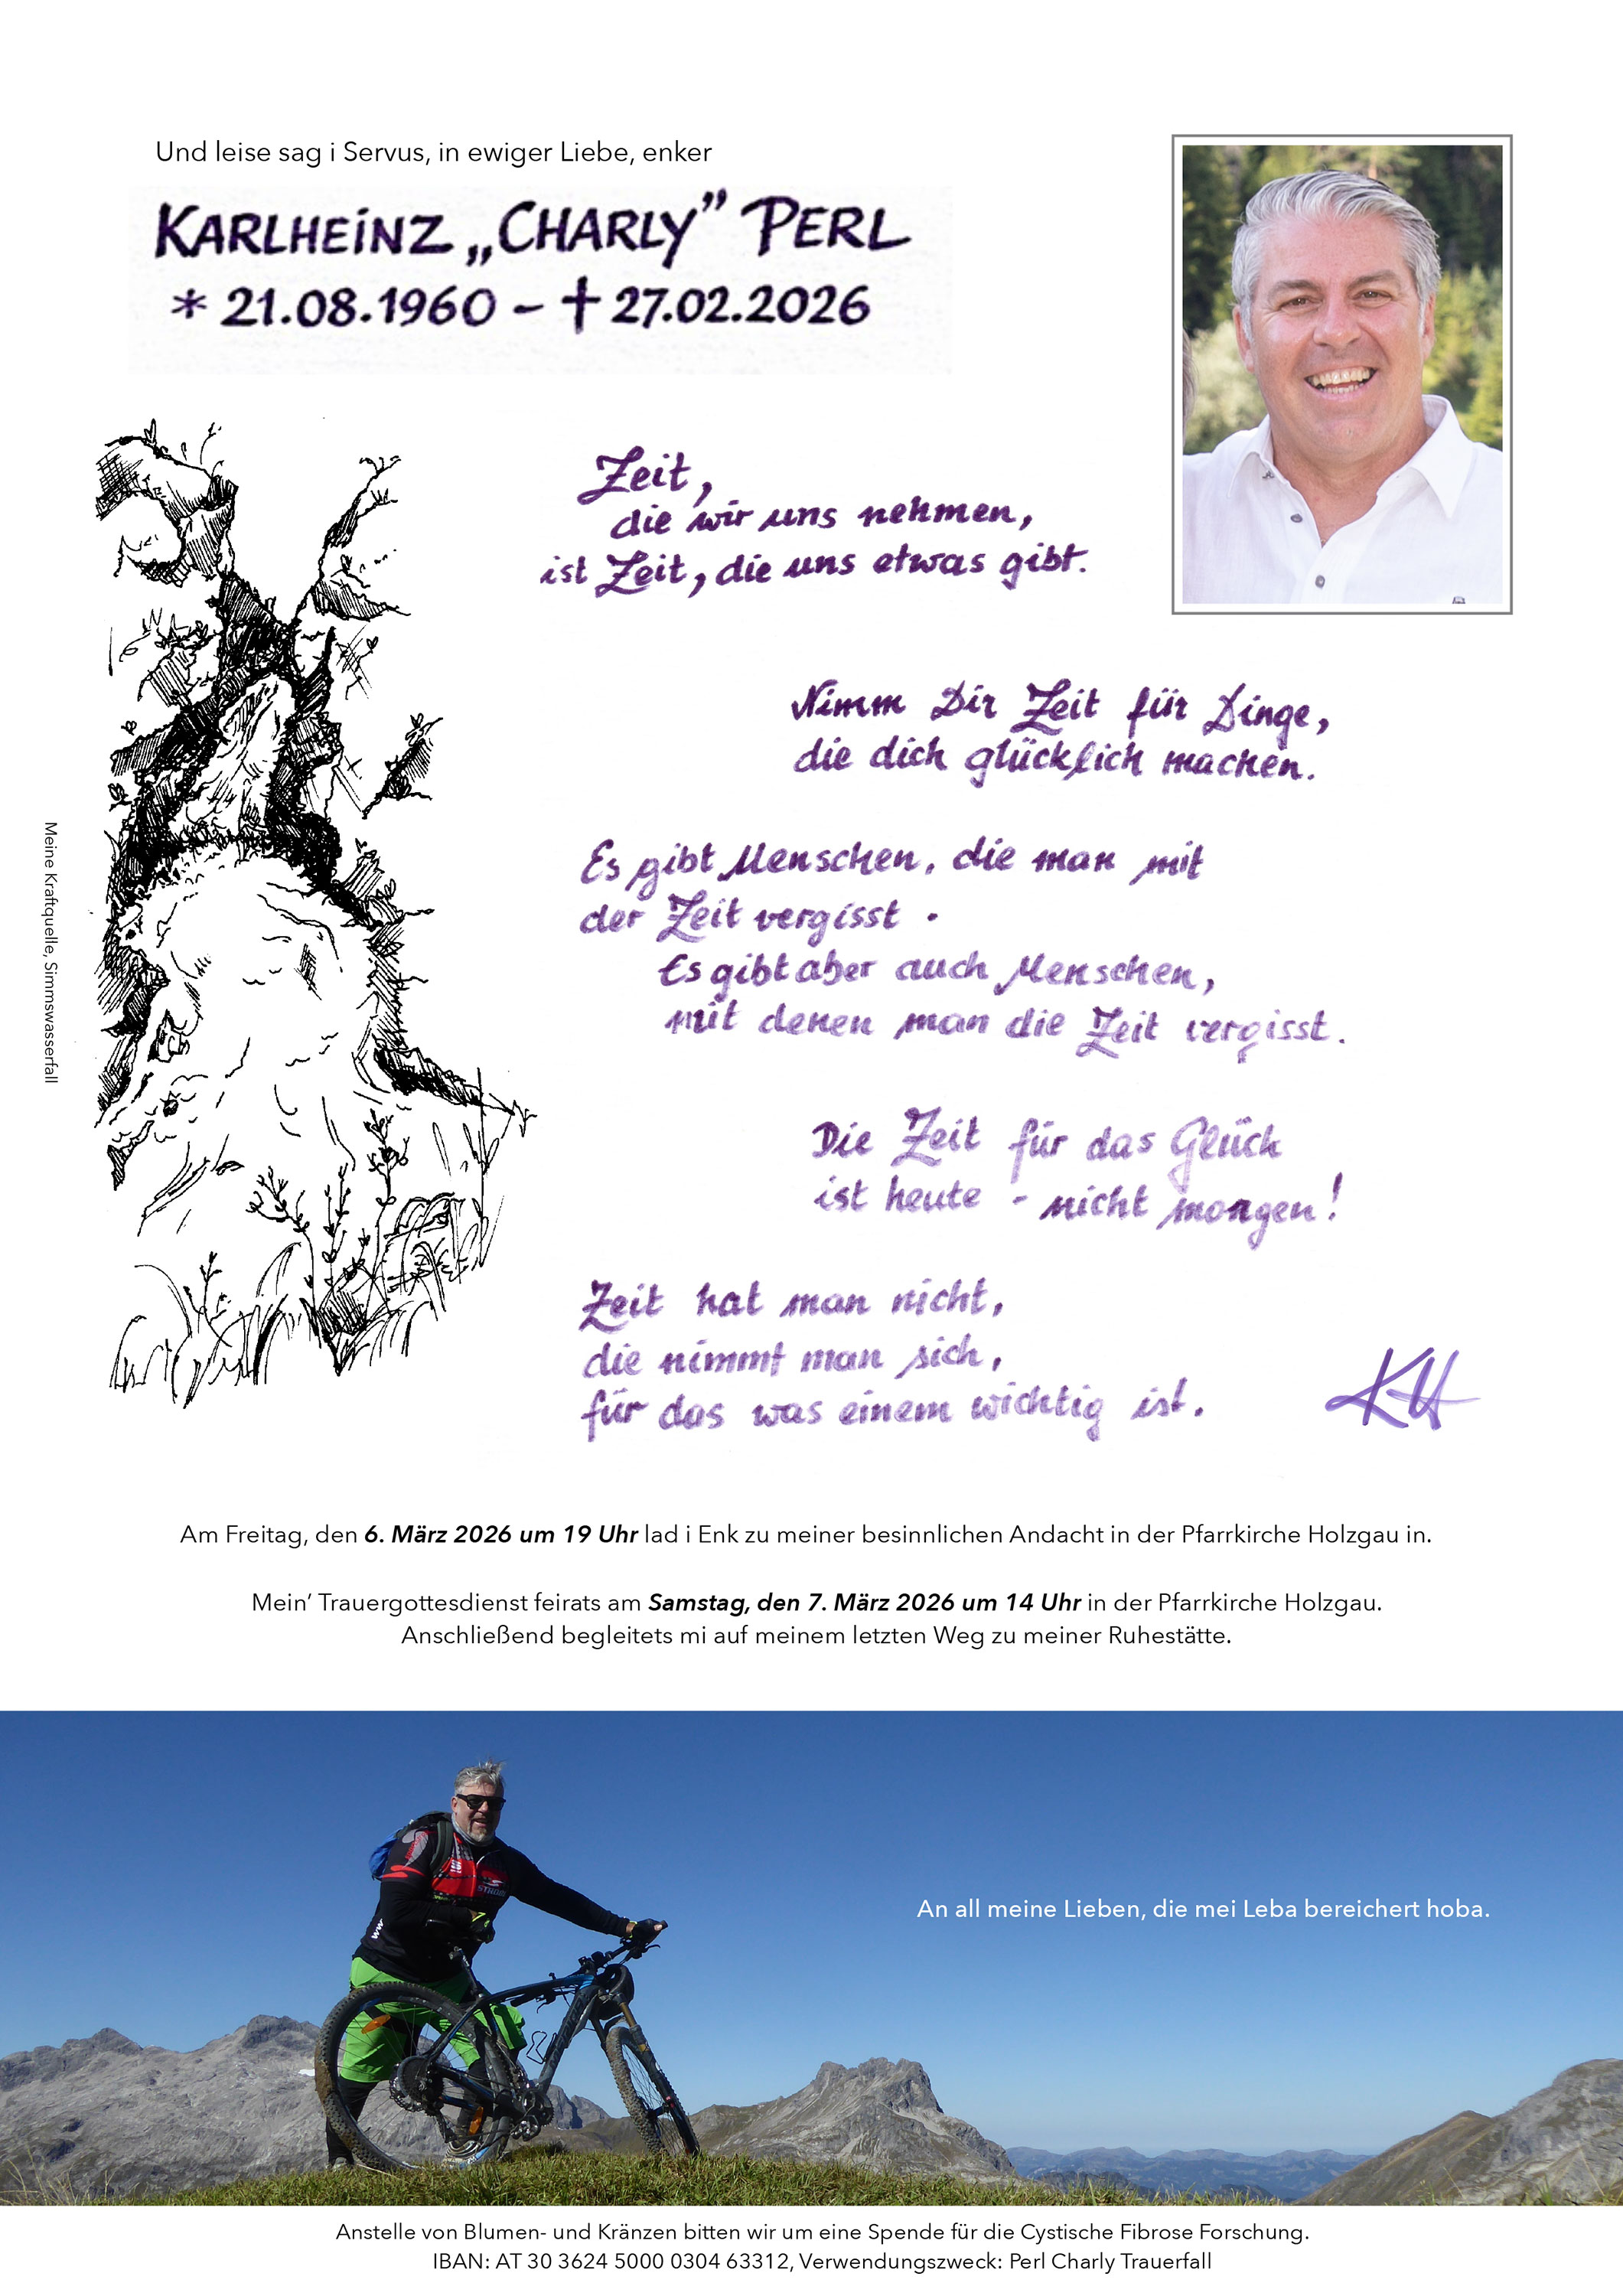 Und leise sag i Servus, in ewiger Liebe, enker
KARLHEINZ „CHARLY” PERL
* 21.08.1960 – † 27.02.2026
Zeit,
die wir uns nehmen,
ist Zeit, die uns etwas gibt.
Nimm Dir Zeit für Dinge,
die dich glücklich machen.
Es gibt Menschen, die man mit
der Zeit vergisst.
Es gibt aber auch Menschen,
mit denen man die Zeit vergisst.
Die Zeit für das Glück
ist heute - nicht morgen!
Zeit hat man nicht,
die nimmt man sich,
für das was einem wichtig ist.
KH
Meine Kraftquelle, Simmswasserfall
Am Freitag, den 6. März 2026 um 19 Uhr lad i Enk zu meiner besinnlichen Andacht in der Pfarrkirche Holzgau in.
Mein’ Trauergottesdienst feirats am Samstag, den 7. März 2026 um 14 Uhr in der Pfarrkirche Holzgau.
Anschließend begleitets mi auf meinem letzten Weg zu meiner Ruhestätte.
An all meine Lieben, die mei Leba bereichert hoba.
Anstelle von Blumen- und Kränzen bitten wir um eine Spende für die Cystische Fibrose Forschung.
IBAN: AT 30 3624 5000 0304 63312, Verwendungszweck: Perl Charly Trauerfall